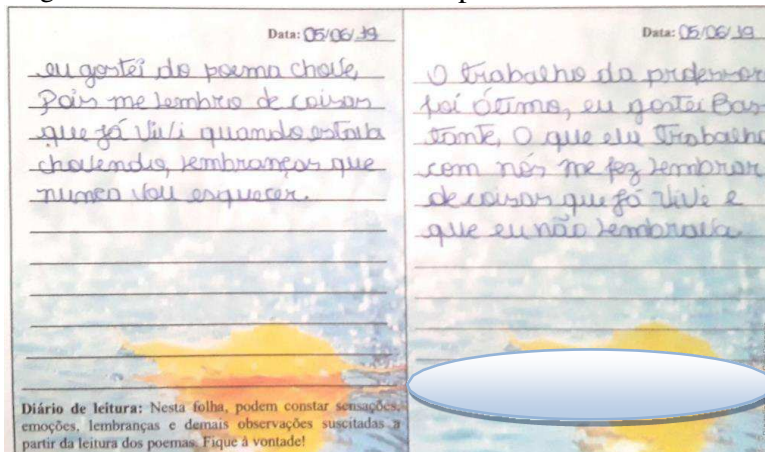 Data: 05/06/19
eu gostei do poema chove,
Pois me lembro de coisas
que já vivi quando estava
chovendo, lembranças que
nunca vou esquecer.
Diário de leitura: Nesta folha, podem constar sensações,
emoções, lembranças e demais observações suscitadas a
partir da leitura dos poemas. Fique à vontade!
Data: 05/06/19
O trabalho da professor
foi ótimo, eu gostei Bas
tante, O que ela Trabalho
com nós me fez lembrar
de coisas que já vivi e
que eu não lembrava